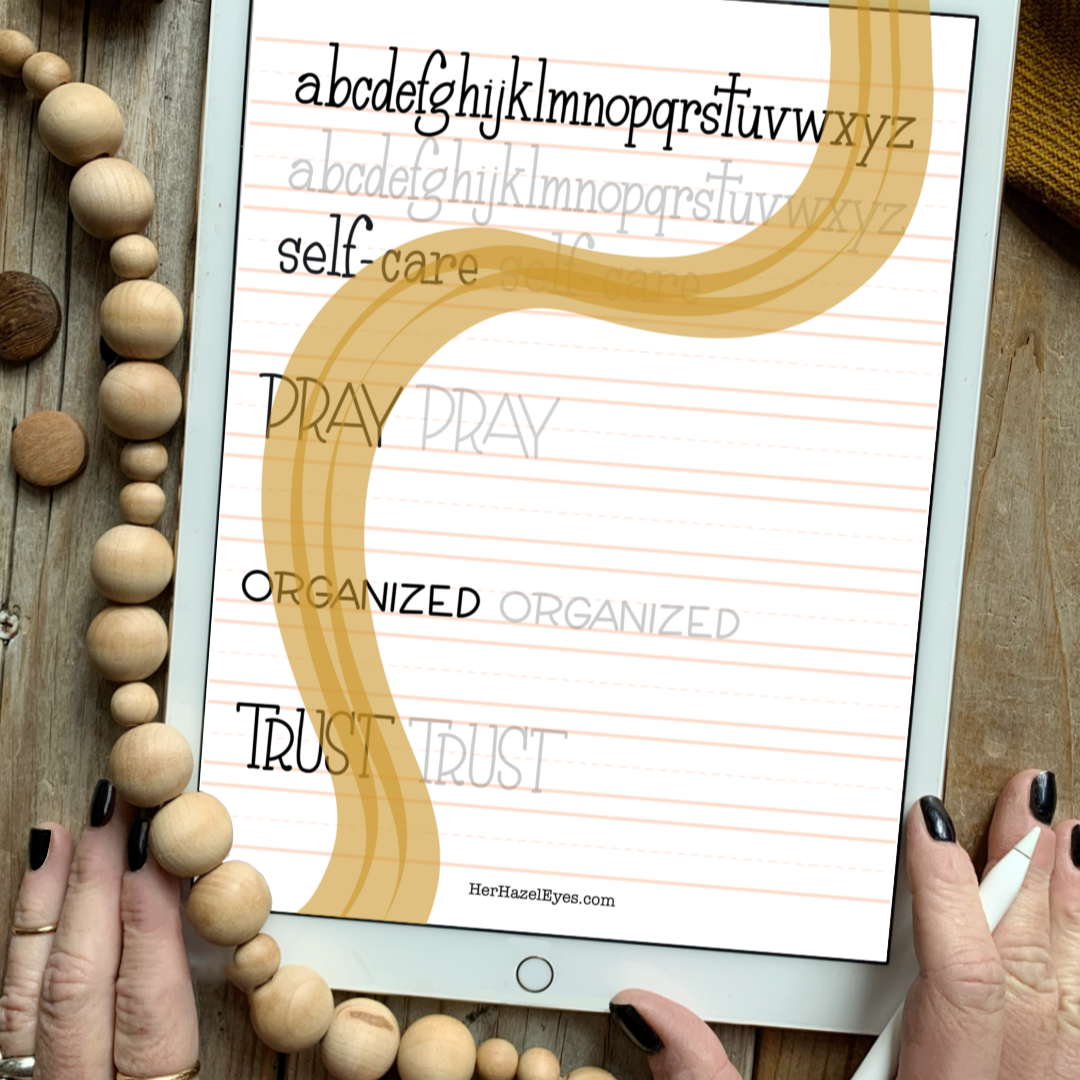 abcdefghijklmnopqrstuvwxyz
abcdefghijklmnopqrstuvwxyz
self-care self-care
PRAY PRAY
ORGANIZED ORGANIZED
TRUST TRUST
HerHazelEyes.com